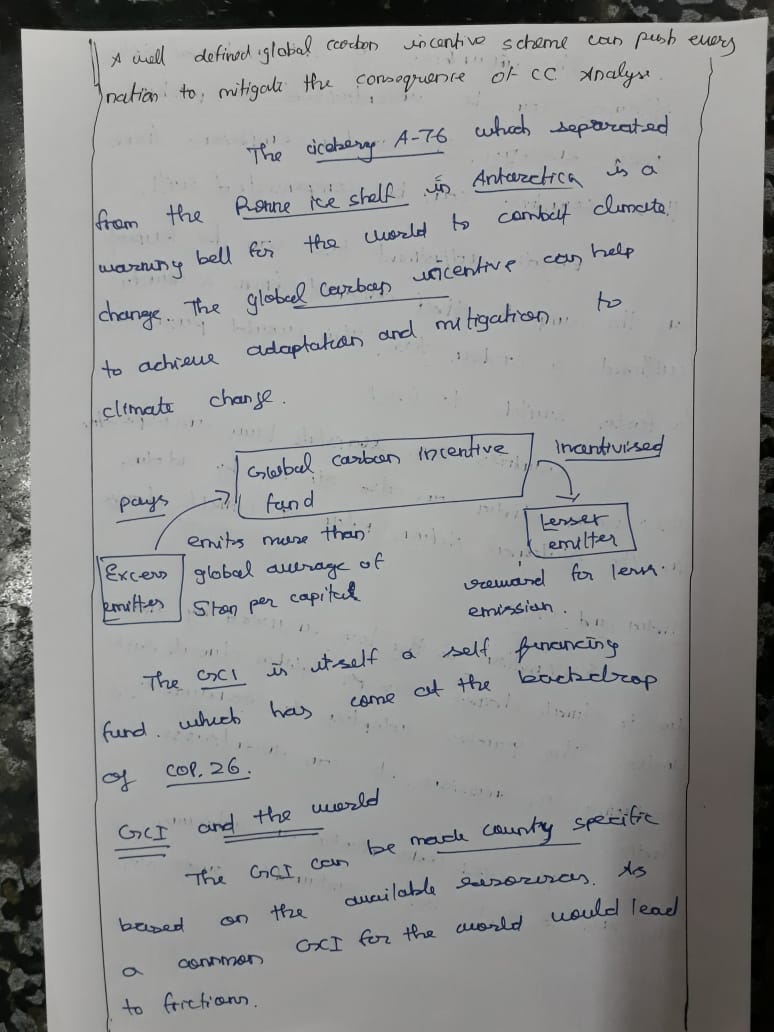 A well defined global carbon incentive scheme can push every
nation to mitigate the consequence of CC Analyse.
The iceberg A-76 which separated
from the Ronne ice shelf in Antarctica is a
warning bell for the world to combat climate
change. The global carbon incentive can help
to achieve adaptation and mitigation to
climate change.
Global carbon incentive
fund
Incentivised
pays
Lesser
emitter
Excess
emitter
emits more than
global average of
5 ton per capital
reward for less
emission.
The GCI is itself a self financing
fund. which has come at the backdrop
of COP.26.
GCI and the world
The GCI can be made county specific
based on the available resources. As
a common GCI for the world would lead
to frictions.